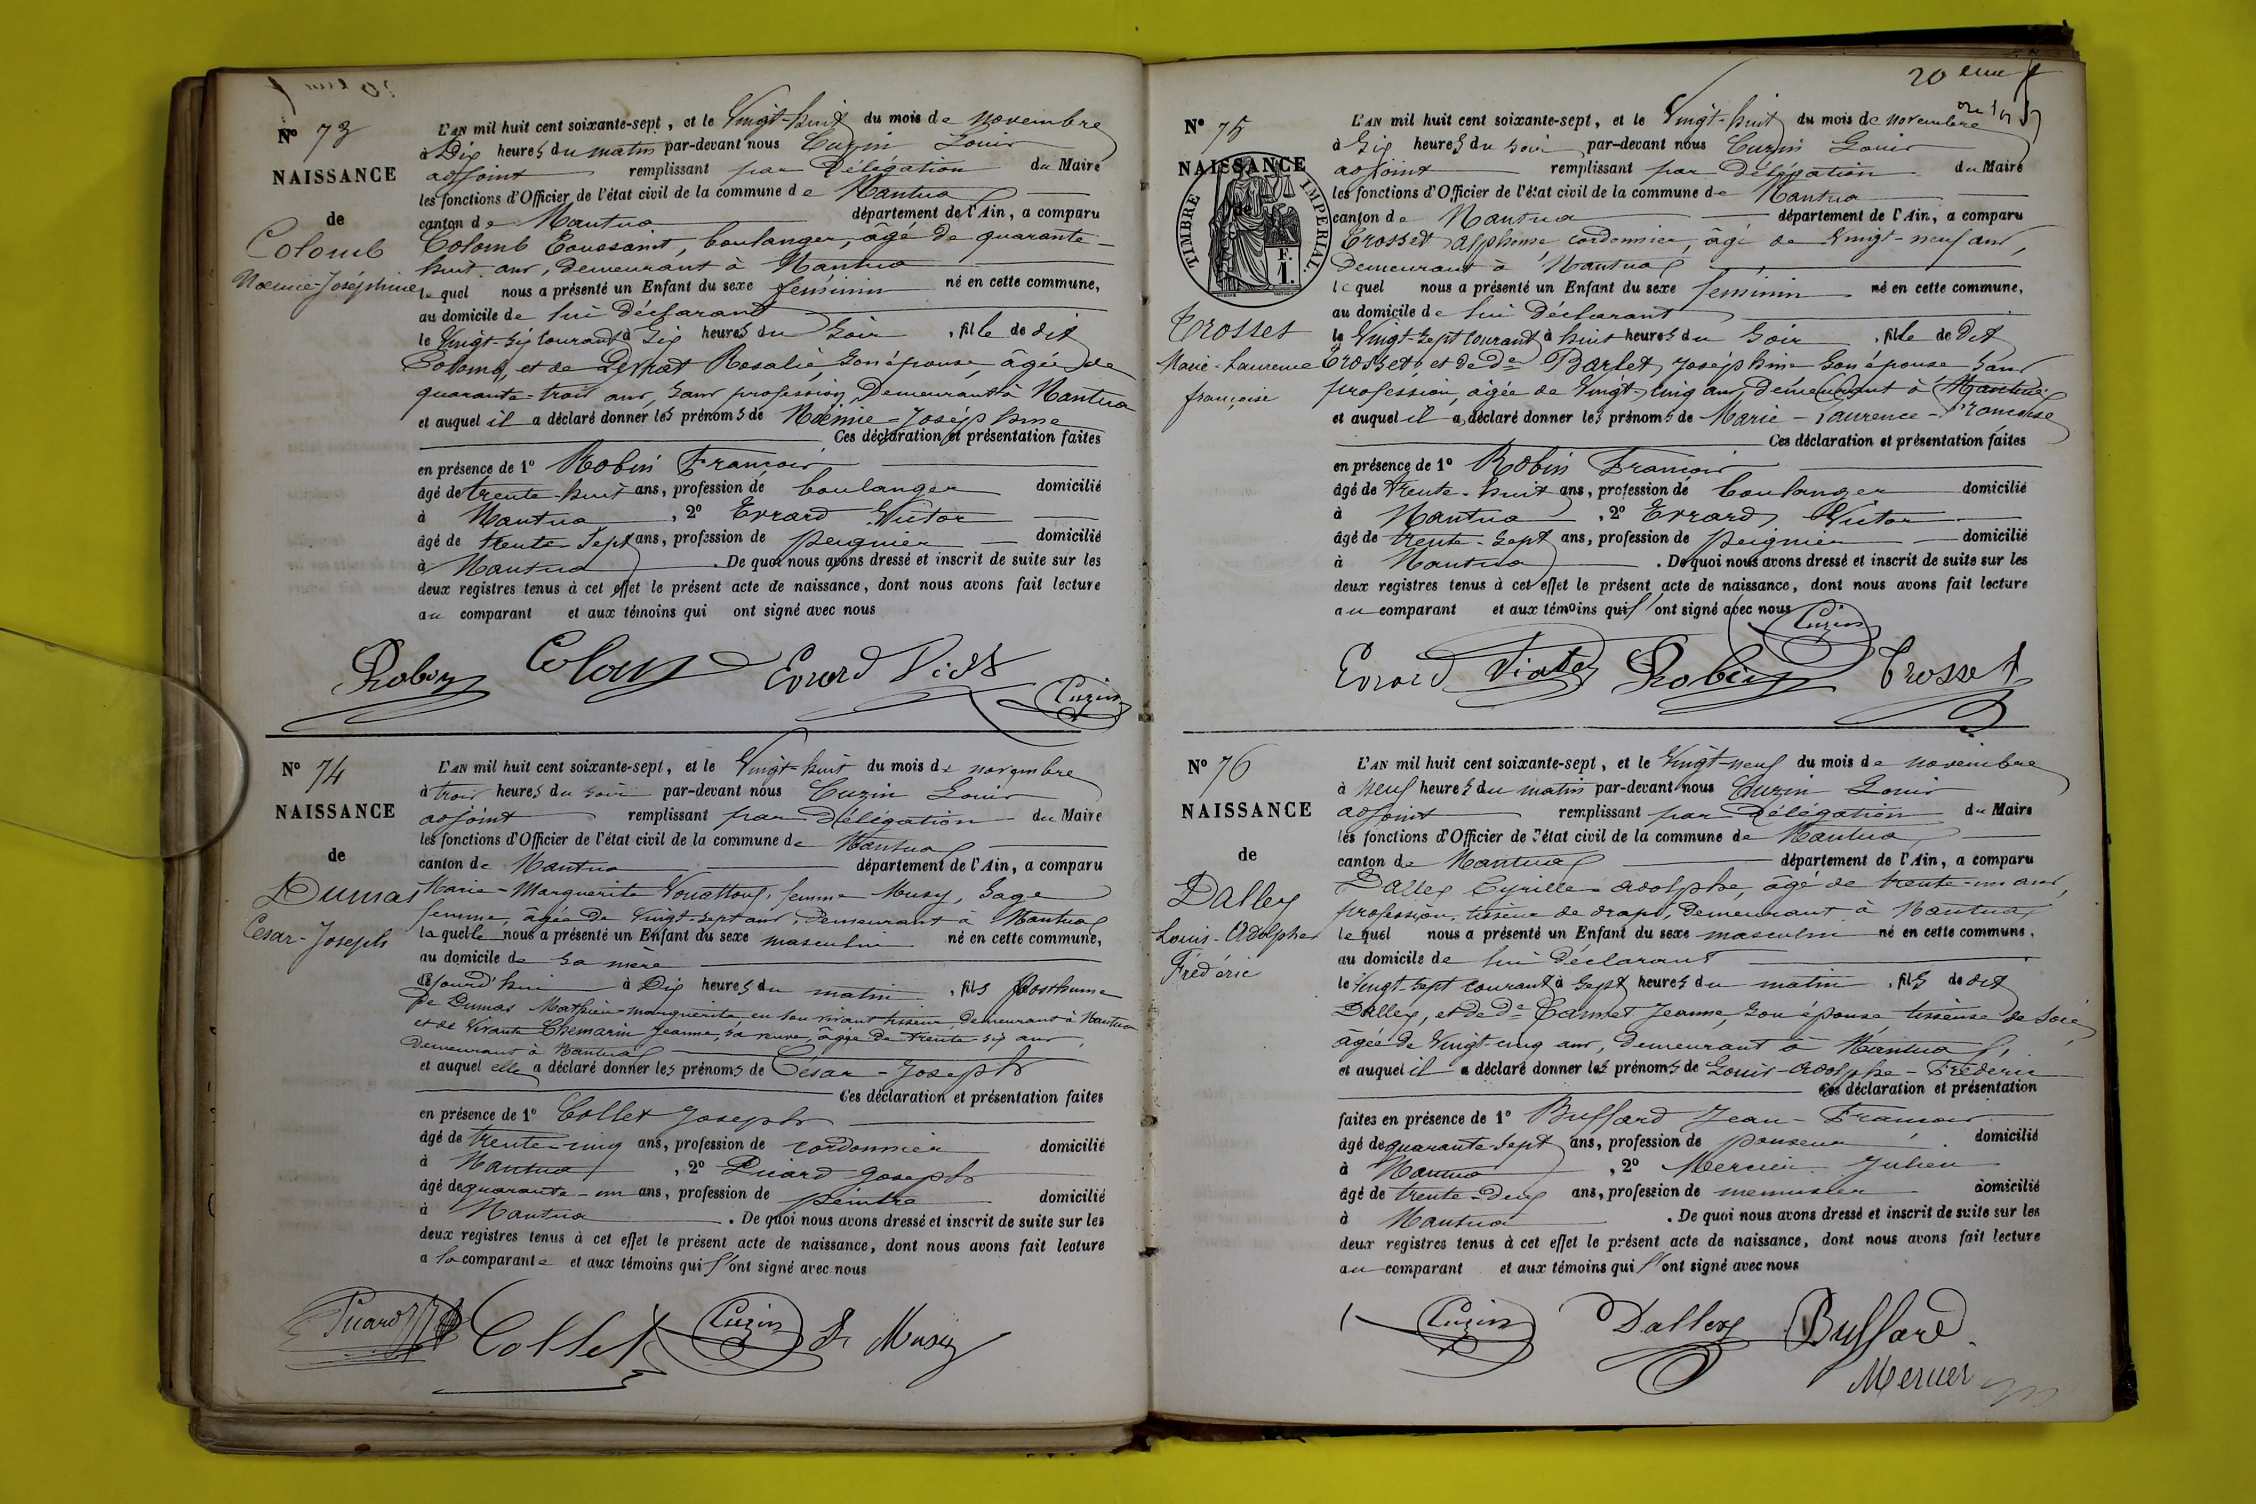 N° 73
NAISSANCE
de
Colomb
Noémie-Joséphine
L'AN mil huit cent soixante-sept, et le Vingt-huit du mois de novembre
à Dix heures du matin par-devant nous Cuzin Louis
adjoint remplissant par Délégation du Maire
les fonctions d'Officier de l'état civil de la commune de Nantua
canton de Nantua département de l'Ain, a comparu
Colomb Toussaint, boulanger, âgé de quarante-
huit ans, demeurant à Nantua
lequel nous a présenté un Enfant du sexe féminin né en cette commune,
au domicile de lui déclarant
le Vingt-six courant à Six heures du Soir, fille de dit
Colomb, et de Rosalie, son épouse, âgée de
quarante-trois ans, sans profession, Demeurant à Nantua
et auquel il a déclaré donner les prénoms de Noémie-Joséphine
Ces déclaration et présentation faites
en présence de 1° Robin François
âgé de trente-huit ans, profession de boulanger domicilié
à Nantua, 2° Evrard Victor
âgé de trente-sept ans, profession de peignier domicilié
à Nantua. De quoi nous avons dressé et inscrit de suite sur les
deux registres tenus à cet effet le présent acte de naissance, dont nous avons fait lecture
au comparant et aux témoins qui ont signé avec nous
Robin Colomb Evrard Vict Cuzin
N° 74
NAISSANCE
de
Dumas
Cesar-Joseph
L'AN mil huit cent soixante-sept, et le Vingt-huit du mois de novembre
à trois heures du soir par-devant nous Cuzin Louis
adjoint remplissant par Délégation du Maire
les fonctions d'Officier de l'état civil de la commune de Nantua
canton de Nantua département de l'Ain, a comparu
Marie-Marguerite femme Musy, Sage
femme, âgée de Vingt-sept ans, demeurant à Nantua
laquelle nous a présenté un Enfant du sexe masculin né en cette commune,
au domicile de sa mère
à Dix heures du matin, fils posthume
de Dumas Mathieu-marguerite en son vivant tisseur, Demeurant à Nantua
et de vivante Chemarin Jeanne, sa veuve, âgée de trente-six ans,
demeurant à Nantua
et auquel elle a déclaré donner les prénoms de Cesar-Joseph
Ces déclaration et présentation faites
en présence de 1° Collet Joseph
âgé de trente-cinq ans, profession de cordonnier domicilié
à Nantua, 2° Picard Joseph
âgé de quarante-un ans, profession de peintre domicilié
à Nantua. De quoi nous avons dressé et inscrit de suite sur les
deux registres tenus à cet effet le présent acte de naissance, dont nous avons fait lecture
a la comparante et aux témoins qui ont signé avec nous
Picard Collet Cuzin Musy
20 eme
N° 75
NAISSANCE
de
TIMBRE IMPERIAL
F.
1.
Trosset
Marie-Laurence
françoise
L'AN mil huit cent soixante-sept, et le Vingt-huit du mois de novembre
à Six heures du soir par-devant nous Cuzin Louis
adjoint remplissant par Délégation du Maire
les fonctions d'Officier de l'état civil de la commune de Nantua
canton de Nantua département de l'Ain, a comparu
Trosset Alphonse cordonnier, âgé de Vingt-neuf ans,
Demeurant à Nantua
lequel nous a présenté un Enfant du sexe féminin né en cette commune,
au domicile de lui Déclarant
le Vingt-sept courant à huit heures du Soir, fille de Dit
Trosset, et de De Barlet, Joséphine son épouse sans
profession, âgée de Vingt-cinq ans, demeurant à Nantua
et auquel il a déclaré donner les prénoms de Marie-Laurence-Françoise
Ces déclaration et présentation faites
en présence de 1° Robin François
âgé de trente-huit ans, profession de boulanger domicilié
à Nantua, 2° Evrard, Victor
âgé de trente-sept ans, profession de peignier domicilié
à Nantua. De quoi nous avons dressé et inscrit de suite sur les
deux registres tenus à cet effet le présent acte de naissance, dont nous avons fait lecture
au comparant et aux témoins qui ont signé avec nous
Cuzin
Evrard Victor Robin Trosset
N° 76
NAISSANCE
de
Dalley
Louis-Adolphe
Frédéric
L'AN mil huit cent soixante-sept, et le Vingt-neuf du mois de novembre
à Neuf heures du matin par-devant nous Cuzin Louis
adjoint remplissant par Délégation du Maire
les fonctions d'Officier de l'état civil de la commune de Nantua
canton de Nantua département de l'Ain, a comparu
Dalley Cyrille-Adolphe, âgé de trente-un ans,
profession, tisseur de draps, Demeurant à Nantua
lequel nous a présenté un Enfant du sexe masculin né en cette commune,
au domicile de lui Déclarant
le Vingt-sept courant à Sept heures du matin, fils de dit
Dalley, et de De Jeanne, son épouse tisseuse de soie,
âgée de Vingt-cinq ans, demeurant à Nantua
et auquel il a déclaré donner les prénoms de Louis-Adolphe-Fréderic
Ces déclaration et présentation
faites en présence de 1° Buffard Jean-François
âgé de quarante sept ans, profession de domicilié
à Nantua, 2° Mercier Julien
âgé de trente-deux ans, profession de menuisier domicilié
à Nantua. De quoi nous avons dressé et inscrit de suite sur les
deux registres tenus à cet effet le présent acte de naissance, dont nous avons fait lecture
au comparant et aux témoins qui ont signé avec nous
Cuzin Dalley Buffard
Mercier